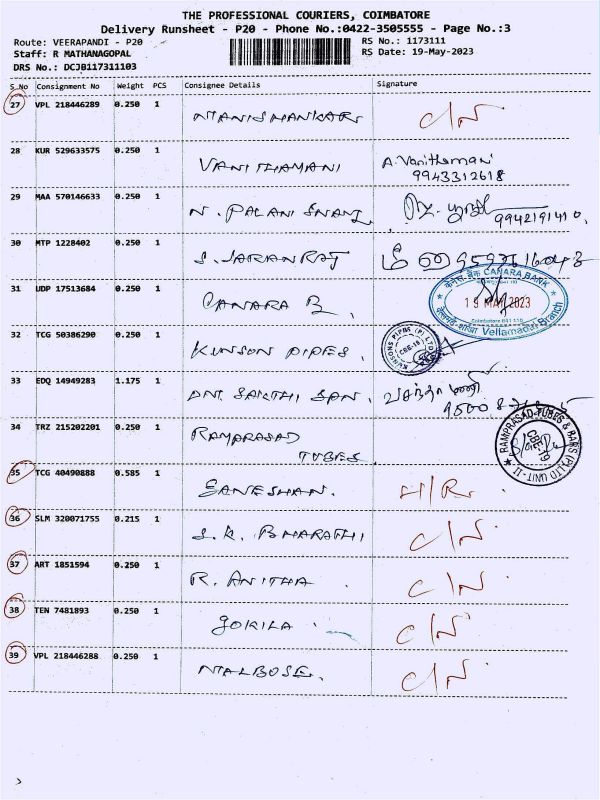 THE PROFESSIONAL COURIERS, COIMBATORE
Delivery Runsheet - P20 - Phone No.:0422-3505555 - Page No.:3
Route: VEERAPANDI - P20
Staff: R MATHANAGOPAL
DRS No.: DCJB117311103
RS No.: 1173111
RS Date: 19-May-2023
S No Consignment No Weight PCS Consignee Details Signature
27 VPL 218446289 0.250 1 C/N
28 KUR 529633575 0.250 1 VANITHAMANI A. Vanithamani
9943312618
29 MAA 570146633 0.250 1 N. PALANI 9942191410.
30 MTP 1228402 0.250 1 S. JARANRAJ
31 UDP 17513684 0.250 1 CANARA B,
केनरा बैंक CANARA BANK
19 MAY 2023
Vellamadai Branch
32 TCG 50386290 0.250 1 KUNSON PIPES.
KUNSONS PIPES (P) LTD
CBE-19
33 EDQ 14949283 1.175 1 SAKTHI வசந்தாமணி
34 TRZ 215202201 0.250 1 RAMPRASAD
TUBES
RAMPRASAD TUBES & BARS (P) LTD UNIT-II
CBE-19
35 TCG 40490888 0.585 1 GANESHAN.
36 SLM 320071755 0.215 1 S.K. BHARATHI C/N
37 ART 1851594 0.250 1 R. ANITHA C/N
38 TEN 7481893 0.250 1 GOKILA C/N
39 VPL 218446288 0.250 1 C/N